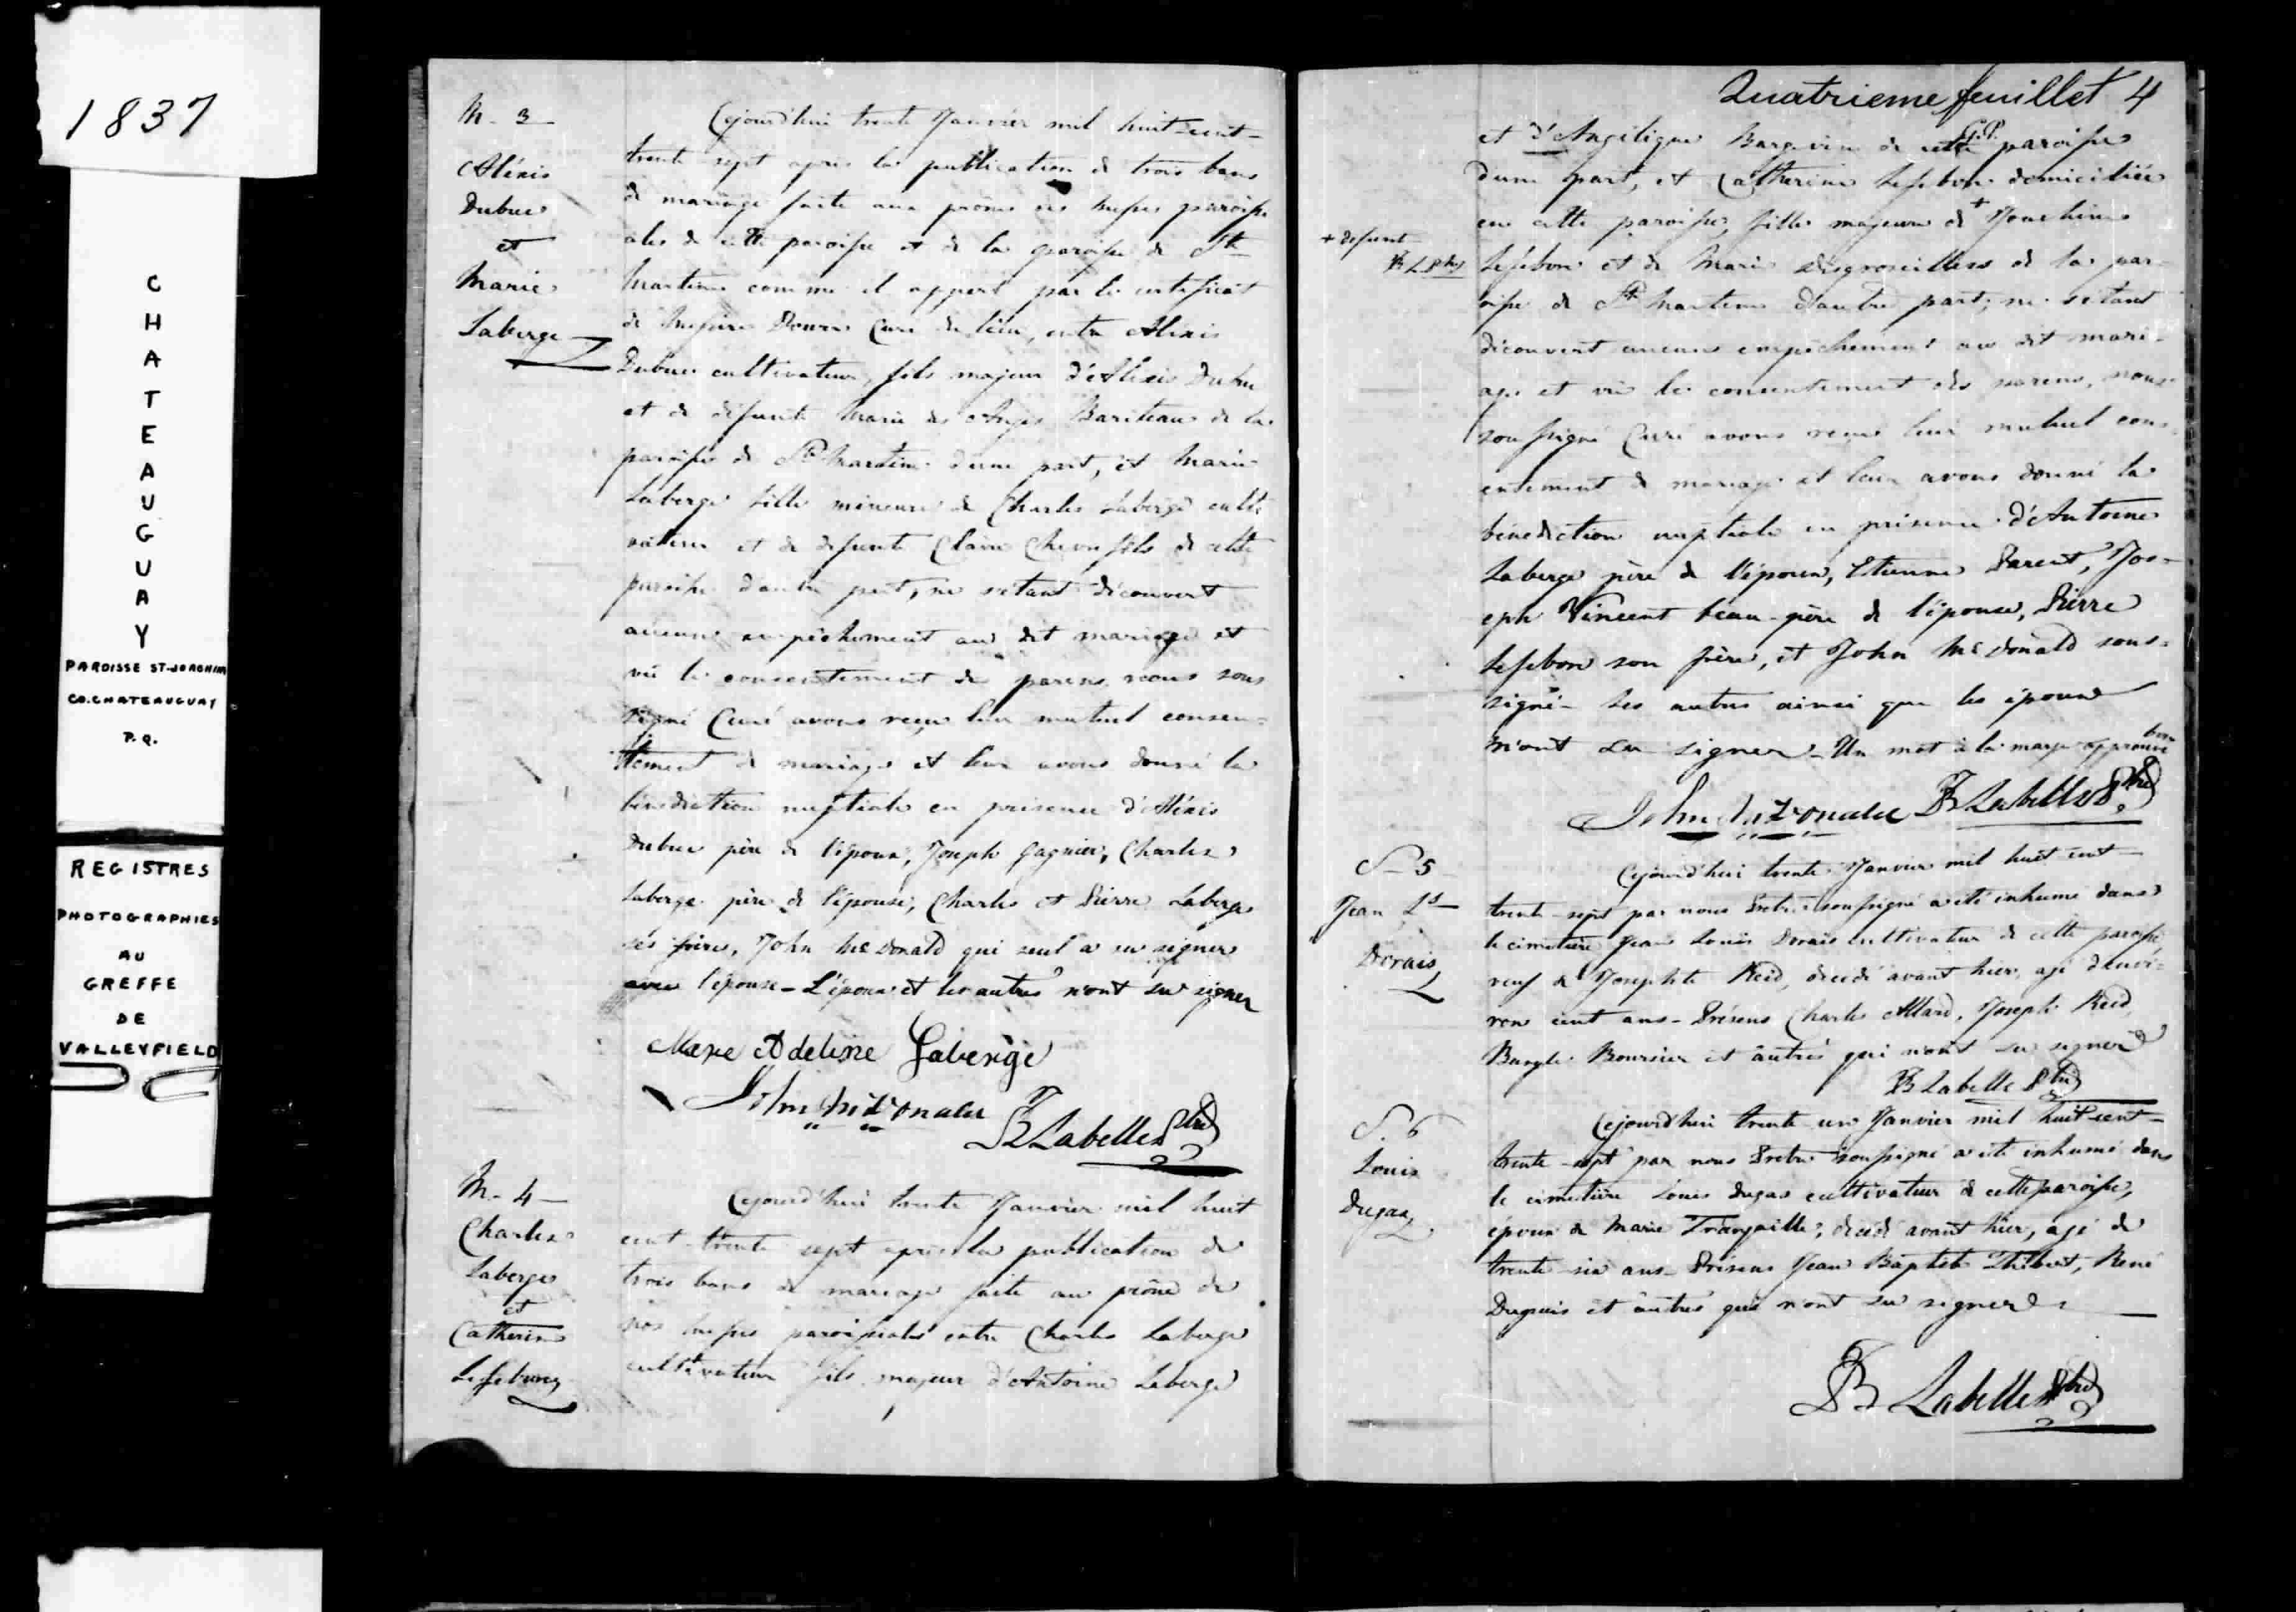 1837
CHATEAUGUAY
PAROISSE ST-JOACHIM
CO. CHATEAUGUAY
P.Q.
REGISTRES
PHOTOGRAPHIES
AU
GREFFE
DE
VALLEYFIELD
M. 3
Aléxis
Dubuc
et
Marie
Laberge
Cejourd'hui trente Janvier mil huit-cent-
trente-sept après la publication de trois bans
de mariage faite aux prônes des messes paroissi
ales de cette paroisse et de la paroisse de Ste
Martine comme il appert par le certificat
de Messire Curé du lieu, entre Alexis
Dubuc cultivateur, fils majeur d'Alexis Dubuc
et de défunte Marie des Anges Bariteau de la
paroisse de Ste Martine d'une part, et Marie
Laberge fille mineure de Charles Laberge culti
vateur et de defunte Claire Chevrefils de cette
paroisse d'autre part, ne s'étant découvert
aucun empêchement au dit mariage et
vû le consentement des parens, nous sous
signé Curé avons reçu leur mutuel consen-
tement de mariage et leur avons donné la
bénédiction nuptiale en présence d'Aléxis
Dubuc père de l'époux, Joseph Gagnier, Charles
Laberge père de l'épouse, Charles et Pierre Laberge
ses frères, John McDonald qui seul a su signer
avec l'épouse - L'époux et les autres n'ont su signer
Marie Adeline Laberge
John McDonald
JB Labelle Ptre
M. 4
Charles
Laberge
et
Catherine
Lefebvre
Cejourd'hui trente Janvier mil huit
cent-trente sept après la publication de
trois bans de mariage faite au prône de
nos messes paroissiales entre Charles Laberge
cultivateur fils majeur d'Antoine Laberge
Quatrieme feuillet 4
et d'Angélique Bargevin de cette paroisse
d'une part, et Catherine Lefebvre domiciliée
en cette paroisse, fille majeure de + Joachim
+ defunt
JB L Ptre
Lefebvre et de Marie Desgroseilliers de la par-
oisse de Ste Martine d'autre part; ne s'étant
découvert aucun empêchement au dit mari-
age et vû le consentement des parens, nous
soussigné Curé avons reçu leur mutuel cons-
entement de mariage et leur avons donné la
bénédiction nuptiale en présence d'Antoine
Laberge père de l'époux, Etienne Parent, Jos-
eph Vincent beau-père de l'épouse, Pierre
Lefebvre son frère, et John McDonald sous-
signé - Les autres ainsi que les époux
n'ont su signer - Un mot à la marge approuvé
bon
John McDonald JB Labelle Ptre
S-5
Jean Ls
Dorais
Cejourd'hui trente Janvier mil huit cent-
trente-sept par nous Pretre soussigné a été inhumé dans
le cimetière Jean Louis Dorais cultivateur de cette paroisse
veuf de Josephte Reid, décédé avant hier, agé d'envi-
ron cent ans - Présens Charles Allard, Joseph Reid,
Boursier et autres qui n'ont su signer
JB Labelle Ptre
S. 6
Louis
Dugas
Cejourd'hui trente-un Janvier mil huit-cent-
trente-sept par nous Pretre soussigné a été inhumé dans
le cimetière Louis Dugas cultivateur de cette paroisse,
époux de Marie décédé avant hier, agé de
trente-six ans - Présens Jean Baptiste Thibert, René
Dupuis et autres qui n'ont su signer
JB Labelle Ptre